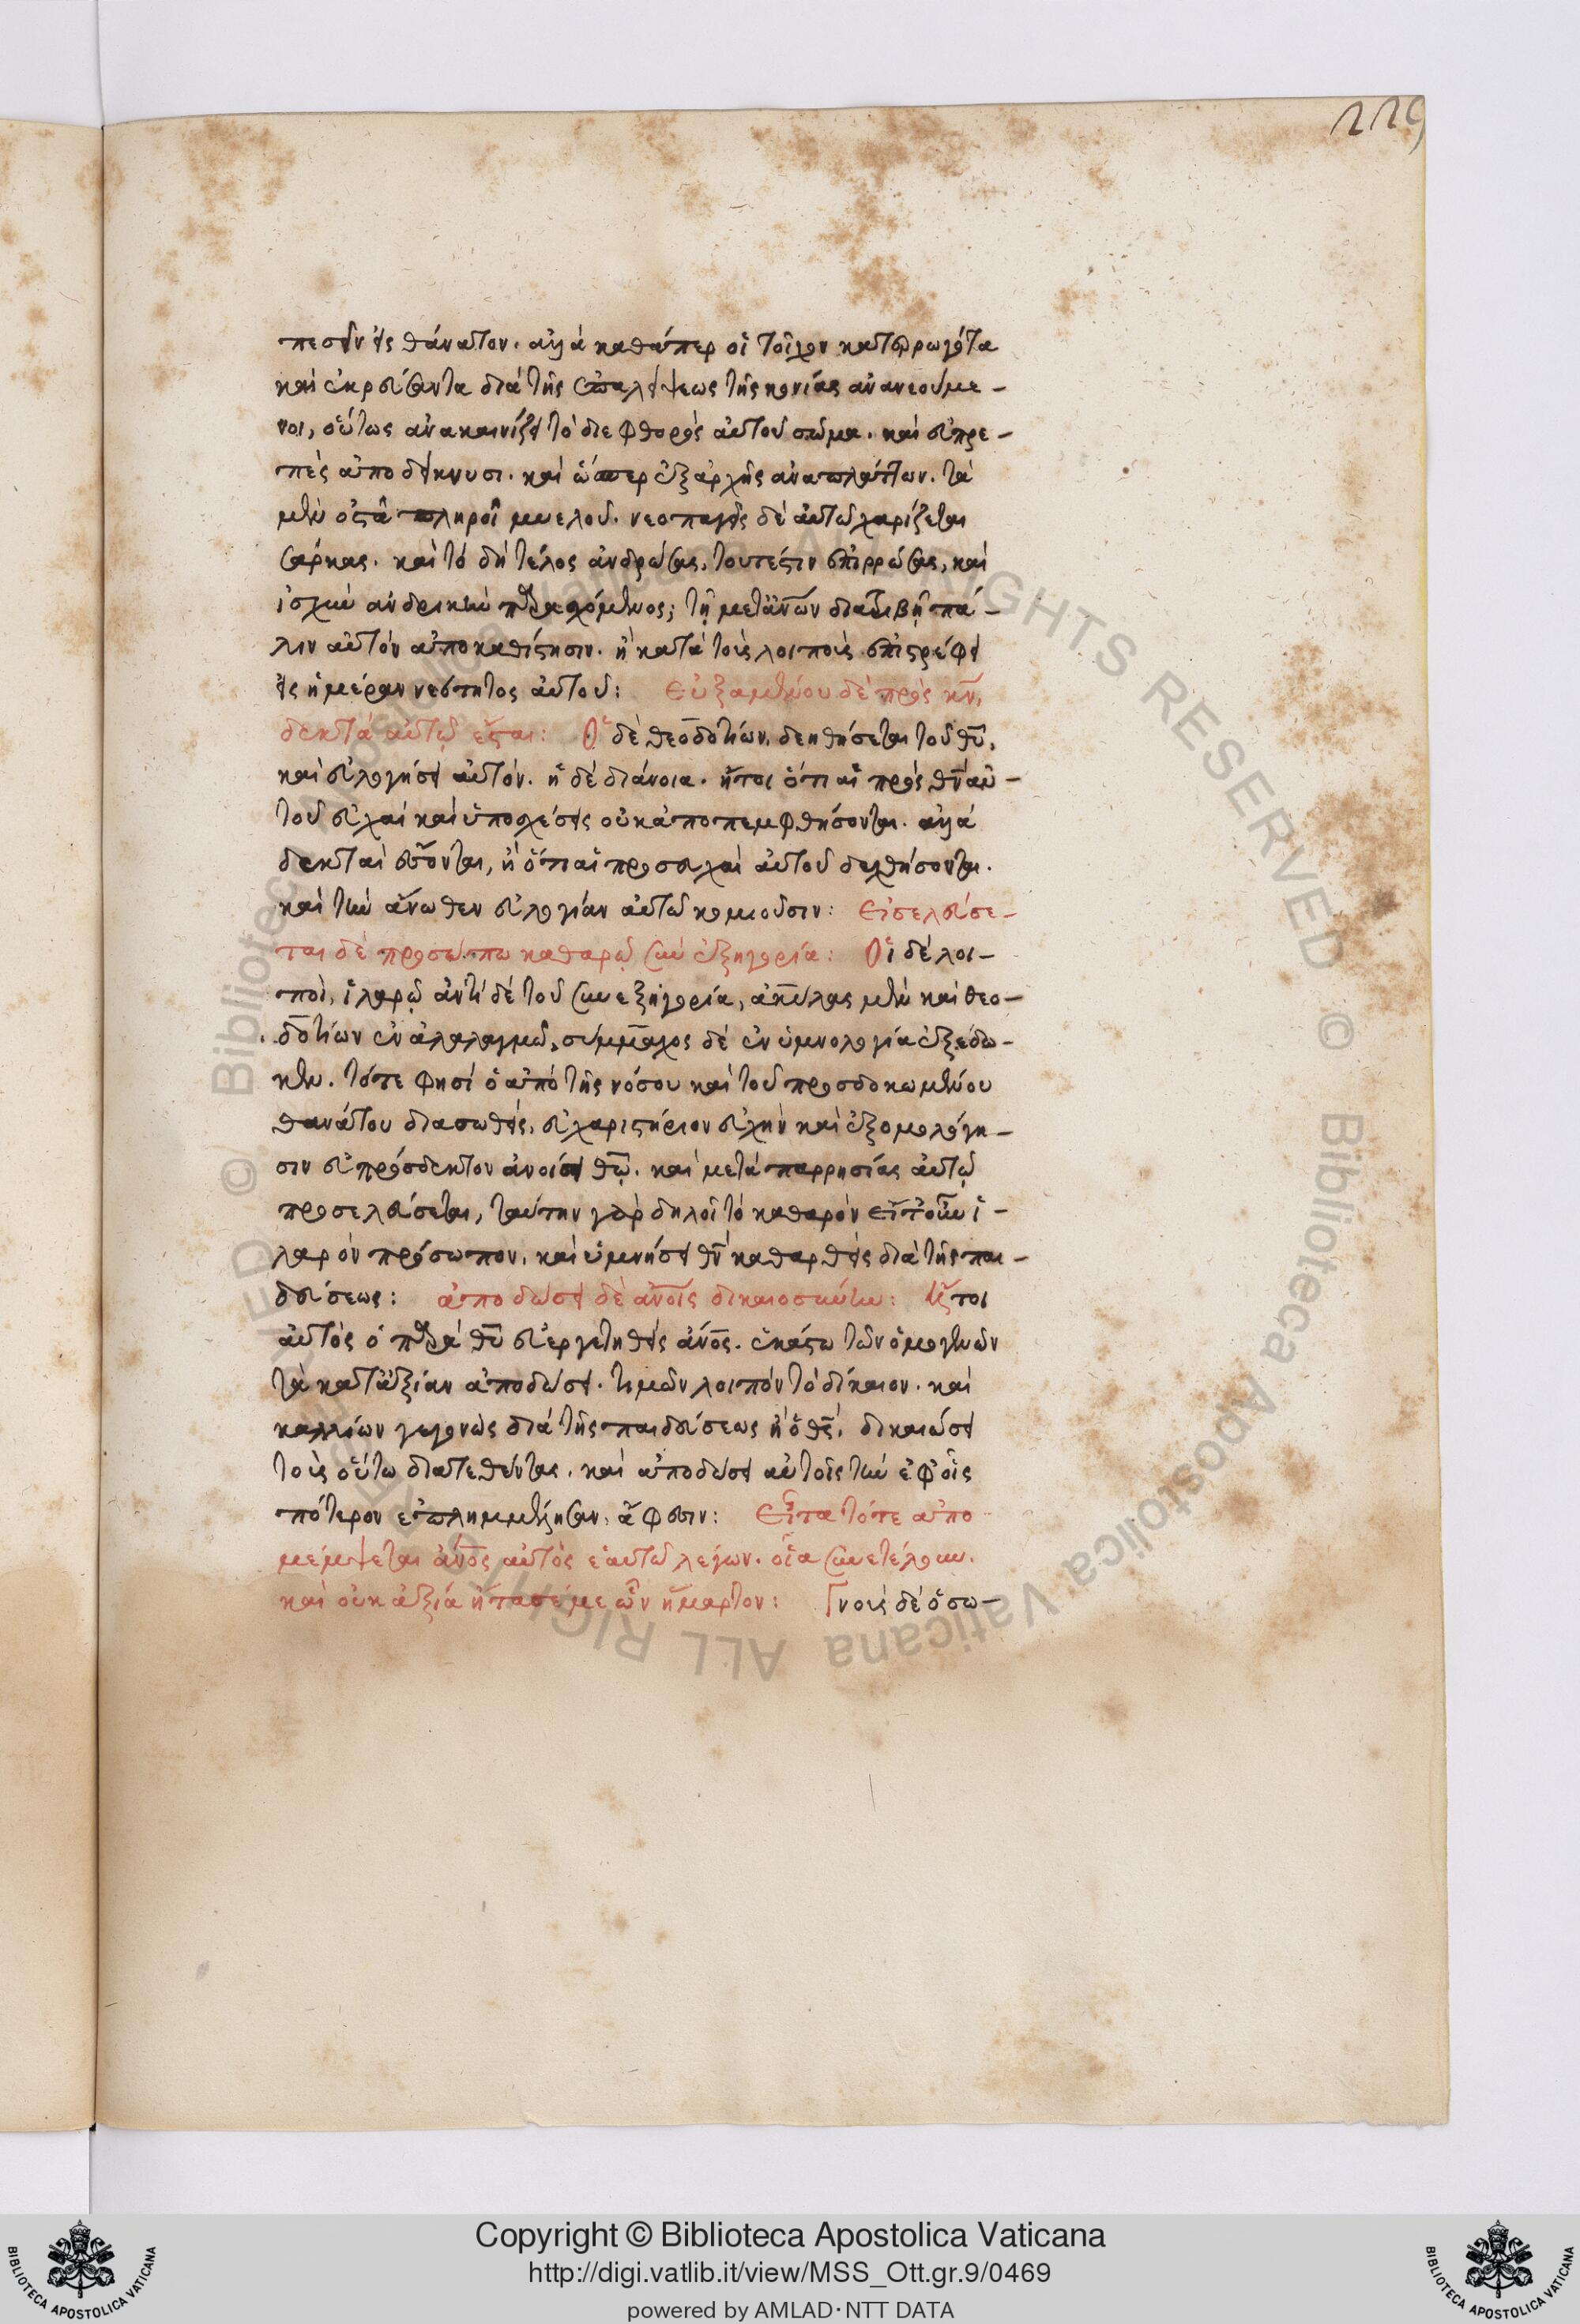 229
πεσεῖν εἰς θάνατον. ἀλλὰ καθάπερ οἱ τοῖχον κατερρωγότα
καὶ ἐκρεύσαντα διὰ τῆς ἐπαλείψεως τῆς κονίας ἀνανεούμε-
νοι, οὕτως ἀνακαινίζει τὸ διεφθορὸς αὐτοῦ σῶμα. καὶ εὐπρε-
πὲς ἀποδείκνυσι. καὶ ὥσπερ ἐξαρχῆς ἀναπλάττων. τὰ
μὲν ὀστᾶ πληροῖ μυελοῦ. νεοπαγεῖς δὲ αὐτῶ χαρίζεται
σάρκας. καὶ τὸ δὴ τέλος ἀνδρώσας, τουτέστιν ἐπιρρώσας, καὶ
ἰσχὺν ἀνδρικὴν παρασχόμενος; τῇ μετ᾽ ἀνῶν διατριβῇ πά-
λιν αὐτὸν ἀποκαθίστησιν. ἢ κατὰ τοὺς λοιποὺς ἐπιστρέφει
εἰς ἡμέραν νεότητος αὐτοῦ: Εὐξαμένου δὲ πρὸς κν,
δεκτὰ αὐτῷ ἔσται: Ὁ δὲ θεοδοτίων, δεηθήσεται τοῦ θυ,
καὶ εὐλογήσει αὐτόν. ἡ δὲ διάνοια. ἤτοι ὅτι αἱ πρὸς θν αὐ-
τοῦ εὐχαὶ καὶ ὑποσχέσεις οὐκ ἀποπεμφθήσονται. ἀλλὰ
δεκταὶ ἔσονται, ἢ ὅτι αἱ προσευχαὶ αὐτοῦ δεχθήσονται.
καὶ τὴν ἄνωθεν εὐλογίαν αὐτῶ κομιοῦσιν: Εἰσελεύσε-
ται δὲ προσώπω καθαρῷ σὺν ἐξηγορία: Οἱ δὲ λοι-
ποὶ, ἱλαρῷ ἀντὶ δὲ τοῦ σὺν ἐξηγορία, ἀκύλας μὲν καὶ θεο-
δοτίων ἐν ἀλαλαγμῶ, σύμμαχος δὲ ἐν ὑμνολογία ἐξέδω-
κεν. τότε φησὶ ὁ ἀπὸ τῆς νόσου καὶ τοῦ προσδοκωμένου
θανάτου διασωθεὶς, εὐχαριστήριον εὐχὴν καὶ ἐξομολόγη-
σιν εὐπρόσδεκτον ἀνοίσει θῷ. καὶ μετὰ παρρησίας αὐτῷ
προσελεύσεται, ταύτην γὰρ δηλοῖ τὸ καθαρὸν εἴτουν ἱ-
λαρὸν πρόσωπον, καὶ ὑμνήσει θν καθαρθεὶς διὰ τῆς παι-
δεύσεως: ἀποδώσει δὲ ἀνοις δικαιοσύνην: Ἤτοι
αὐτὸς ὁ παρὰ θυ εὐεργετηθεὶς ἀνος. ἑκάστω τῶν ὁμογενῶν
τὰ κατ᾽ ἀξίαν ἀποδώσει. τιμῶν λοιπὸν τὸ δίκαιον. καὶ
καλλίων γεγονὼς διὰ τῆς παιδεύσεως ἢ ὁ θς, δικαιώσει
τοὺς οὕτω διατεθέντας. καὶ ἀποδώσει αὐτοῖς τὴν ἐφ᾽ οἷς
πότερον ἐπλημμέλησαν, ἄφεσιν: Εἶτα τότε ἀπο
μέμψεται ἀνος αὐτὸς ἑαυτῶ λέγων. οἷα συνετέλουν.
καὶ οὐκ ἀξία ἤτασέ με ὧν ἥμαρτον: Γνοὺς δὲ ὅσω-
Copyright © Biblioteca Apostolica Vaticana
http://digi.vatlib.it/view/MSS_Ott.gr.9/0469
powered by AMLAD·NTT DATA